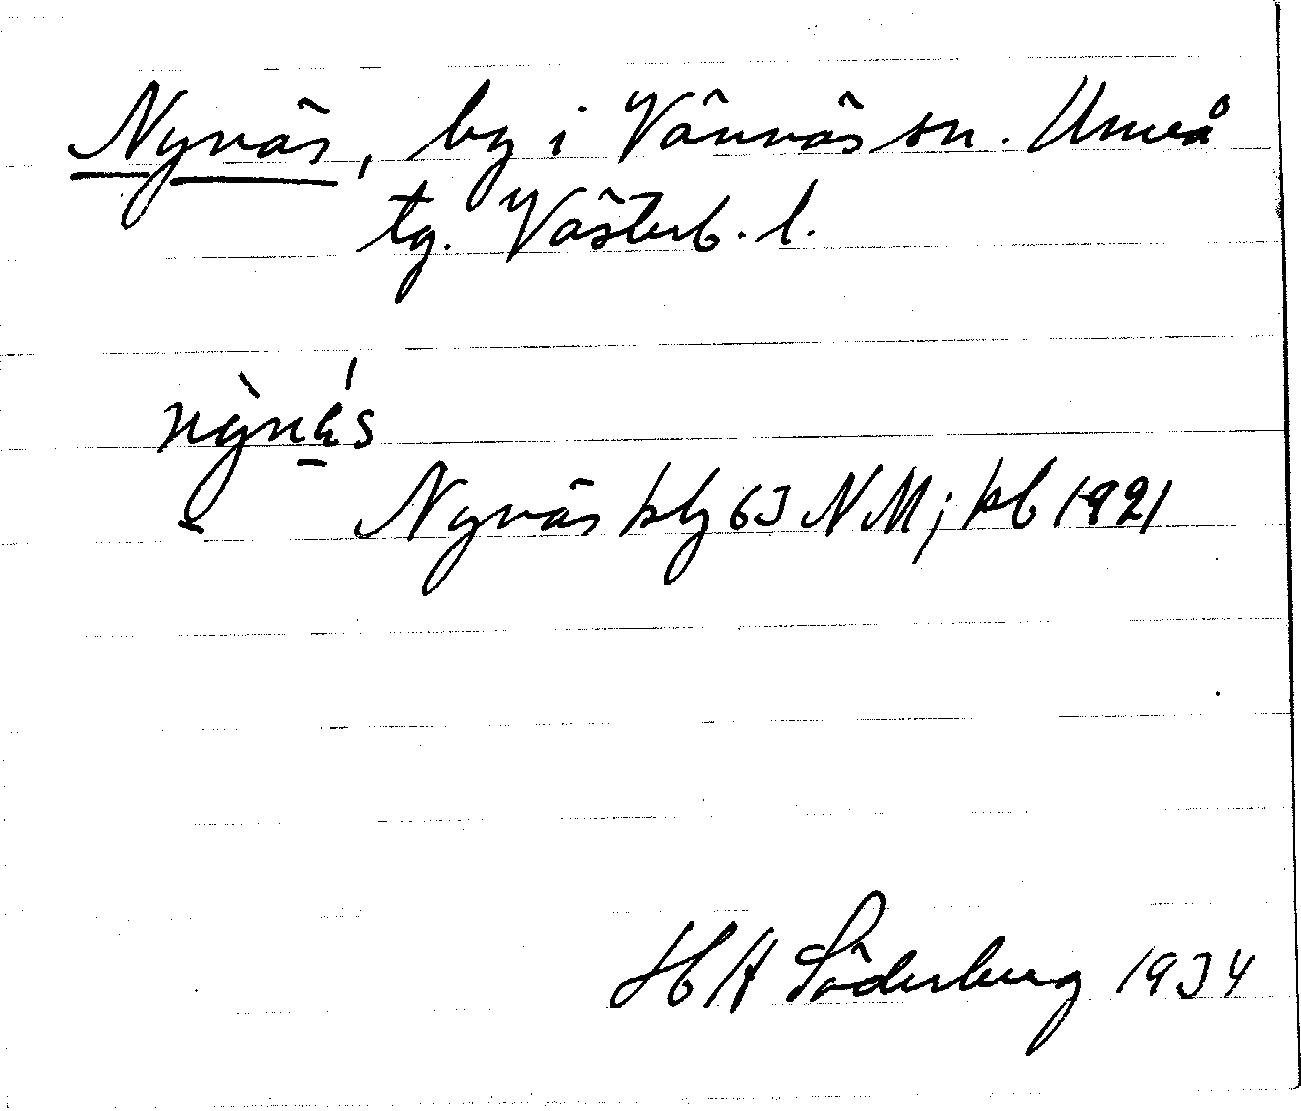 Nynäs, by i Vännäs sn. Umeå
tg. Västerb. l.
nỳnás
Nynäs 63 NM; kb 1921
HA Söderberg 1934